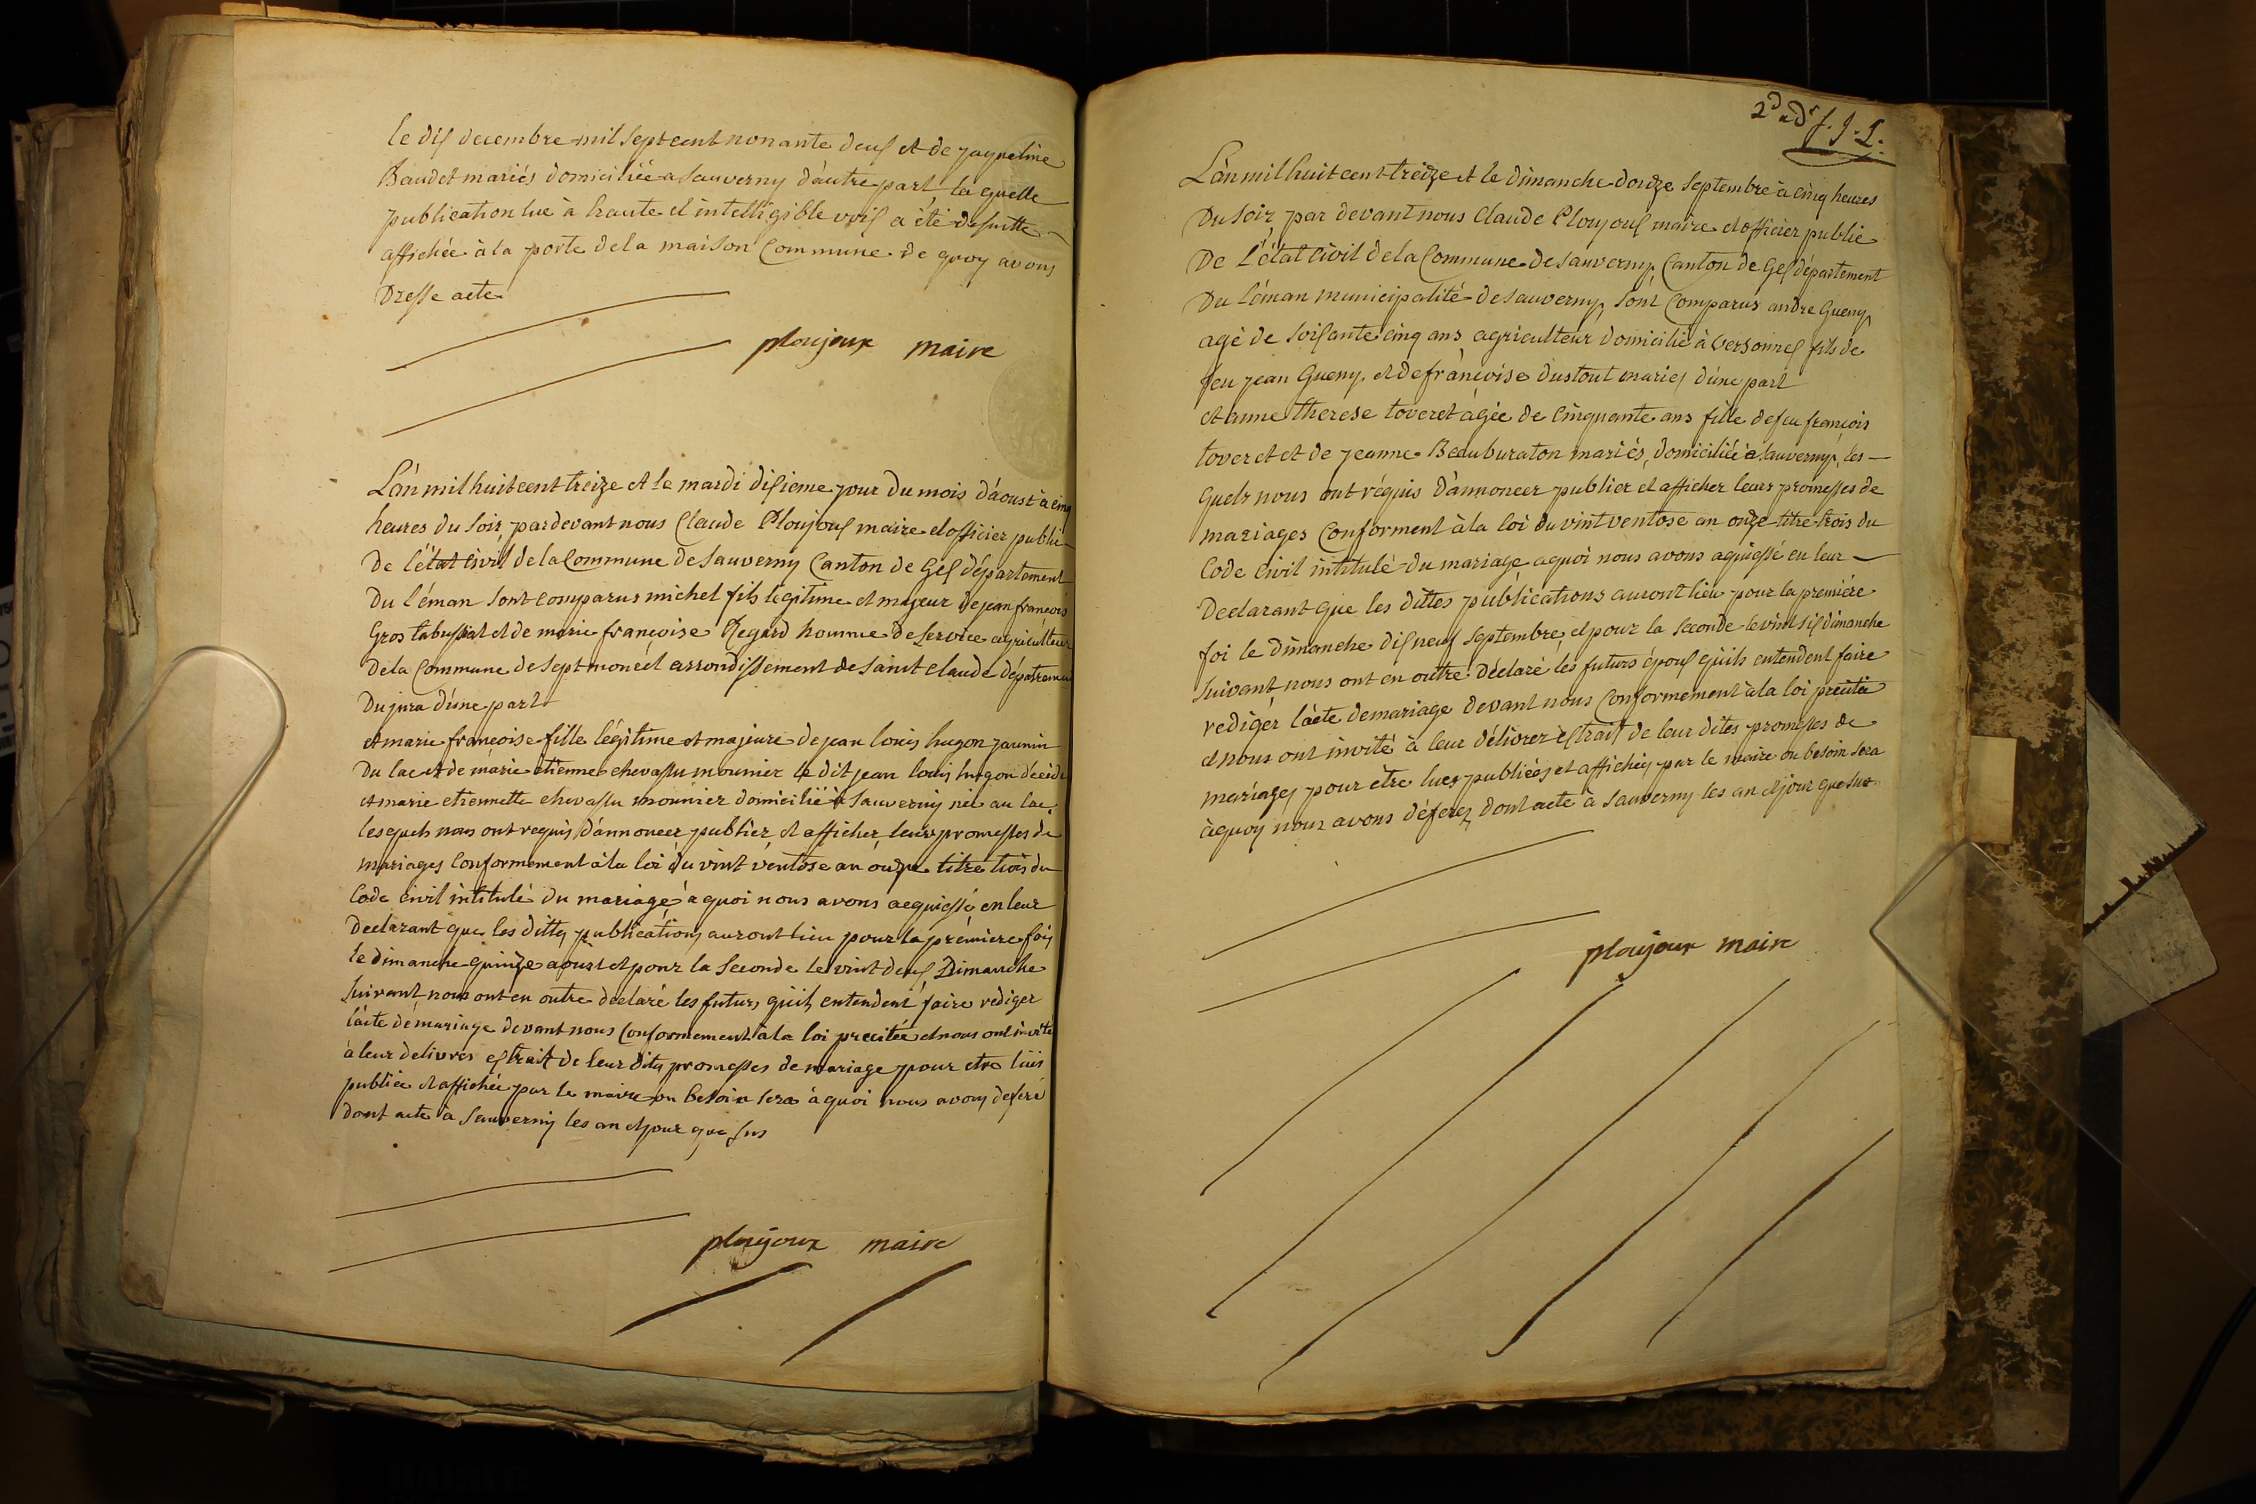 le dis decembre mil sept cent nonante deus et de jaqueline
Baudet mariés domiciliée a Sauverny d'autre part la quelle
publication lue à haute et intelligible vois a été desuitte
affichée à la porte de la maison Commune de quoy avons
Dresse acte
ploujoux maire
L'an mil huit cent treize et le mardi disieme jour du mois d'aoust à cinq
heures du soir, par devant nous Claude Ploujous maire et officier public
De l'état Civil de la Commune de Sauverny Canton de Ges département
Du léman sont comparus michel fils légitime et majeur de jean francois
Gros et de marie francoise Regard homme de service agriculteur
De la Commune de Septmoncel arrondissement de Saint Claude
Du jura d'une part
et marie francoise fille légitime et majeure de jean louis hugon jannin
Du lac et de marie etienne chevassu mounier le dit jean louis hugon décédé
et marie etiennette chevassu mounier domicilié à Sauverny née au lac
lesquels nous ont requis d'annoncer publier et afficher leurs promesses de
mariages Conformement à la loi du vint ventose an onze titre trois du
Code Civil intitulé du mariage à quoi nous avons acquiessé en leur
Declarant que les dittes publications auront lieu pour la prémiere fois
le dimanche quinze aoust et pour la Seconde le vint deus Dimanche
suivant nous ont en outre declaré les futurs quils entendent faire rediger
l'acte de mariage devant nous Conformement à la loi precitée et nous ont invité
a leur delivrer estrait de leur dits promesses de mariage pour etre luës
publiée et affichée par le maire ou besoin sera à quoi nous avons déferé
dont acte à Sauverny les an et jour que sus
ploujoux maire
2d
L'an mil huit cent treize et le dimanche douze Septembre à cinq heures
Du soir, par devant nous Claude Ploujous maire et officier public
De L'état Civil de la Commune de Sauverny Canton de Ges département
Du léman municipalité de Sauverny, sont Comparus andre Gueny
agé de soisante cinq ans agriculteur domicilié à Versonnes fils de
feu jean Gueny et de francoise dustout mariés d'une part
et anne therese toveret âgée de Cinquante ans fille de feu francois
toveret et de jeanne Beauburaton mariés, domiciliée a Sauverny, les
quels nous ont réquis d'annoncer publier et afficher leurs promesses de
mariages Conforment à la loi du vint ventose an onze titre trois du
Code Civil intitulé du mariage a quoi nous avons aquiessé en leur
Declarant que les dittes publications auront lieu pour la première
foi le dimanche dis neuf Septembre, et pour la Seconde le vint sis dimanche
suivant nous ont en outre déclaré les futurs épous qu'ils entendent faire
rediger l'acte de mariage devant nous Conformement à la loi precitée
et nous ont invité à leur délivrer estrait de leur dites promesses de
mariages pour être lues publiées et affichées par le maire ou besoin sera
à quoy nous avons déferez dont acte à Sauverny les an et jour que sus
ploujoux maire